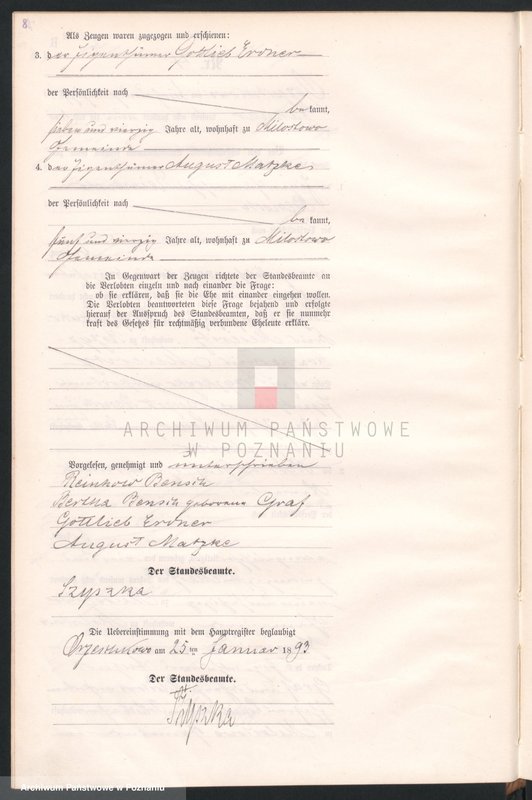 8.
Als Zeugen waren zugezogen und erschienen:
3. der Eigenthümer Gottlieb Erdner
der Persönlichkeit nach
be kannt,
sieben und vierzig Jahre alt, wohnhaft zu Milostowo
Gemeinde
4. der Eigenthümer August Matzke
der Persönlichkeit nach
be kannt,
fünf und vierzig Jahre alt, wohnhaft zu Milostowo
Gemeinde
In Gegenwart der Zeugen richtete der Standesbeamte an
die Verlobten einzeln und nach einander die Frage:
ob sie erklären, daß sie die Ehe mit einander eingehen wollen.
Die Verlobten beantworteten diese Frage bejahend und erfolgte
hierauf der Ausspruch des Standesbeamten, daß er sie nunmehr
kraft des Gesetzes für rechtmäßig verbundene Eheleute erkläre.
ARCHIWUM PAŃSTWOWE
W POZNANIU
Vorgelesen, genehmigt und unterschrieben
Reinhow Bensch
Bertha Bensch geborene Graf
Gottlieb Erdner
August Matzke
Der Standesbeamte.
Szyszka
Die Uebereinstimmung mit dem Hauptregister beglaubigt
am 25 ten Januar 1893
Der Standesbeamte.
Szyszka
Archiwum Państwowe w Poznaniu